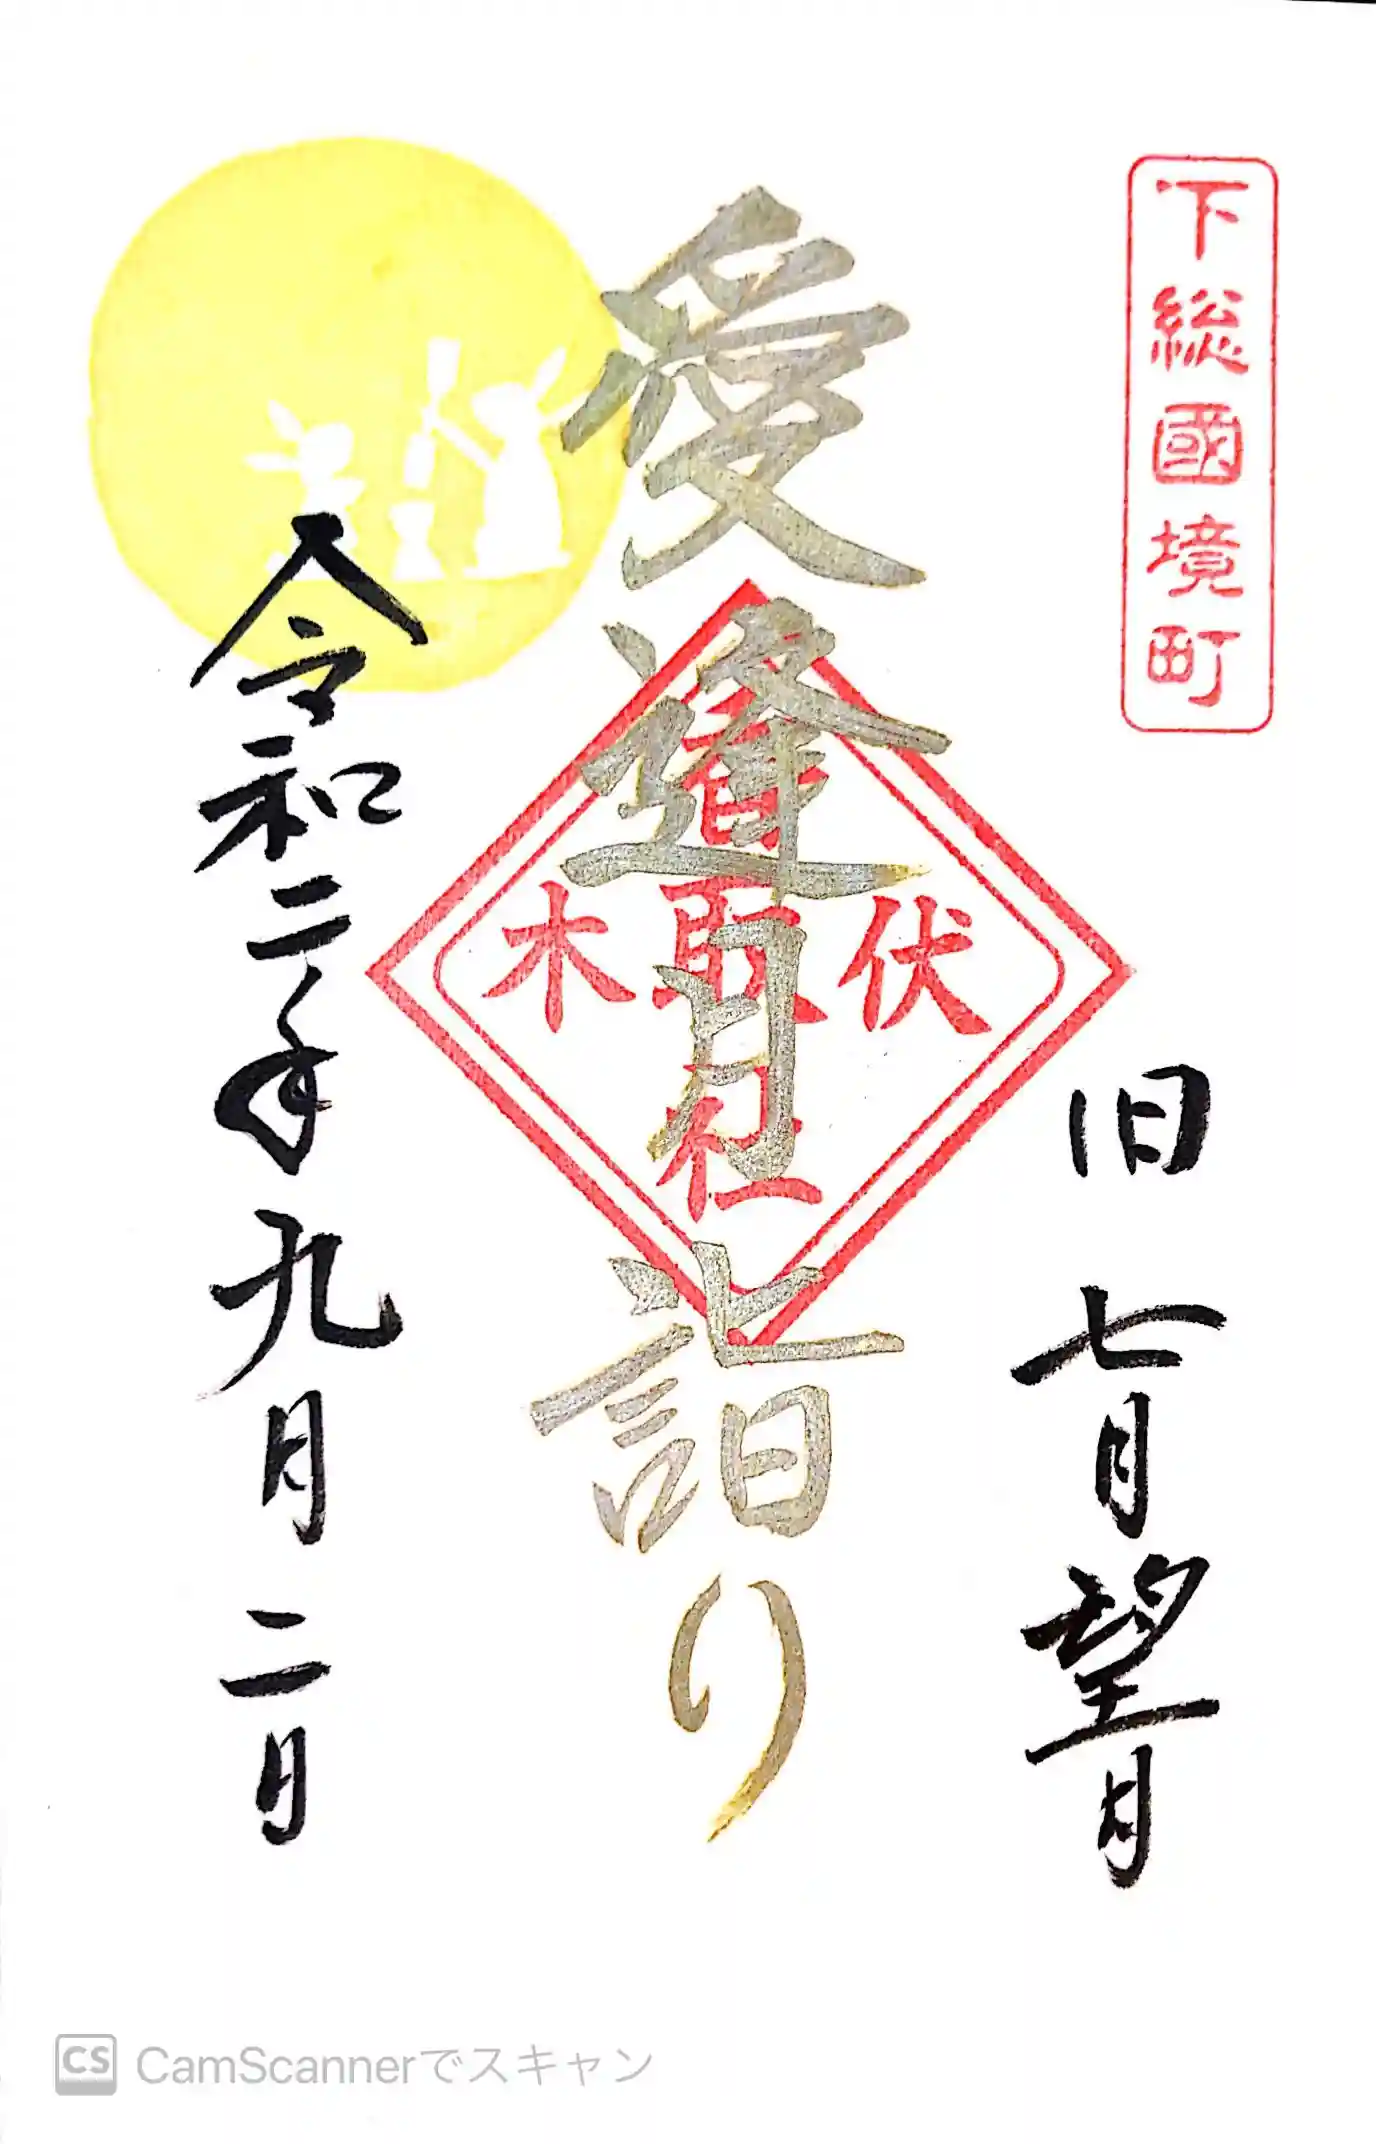 下総國境町
旧七月望月
愛逢月詣り
香取社
伏木
令和二年九月二日
CS CamScannerでスキャン